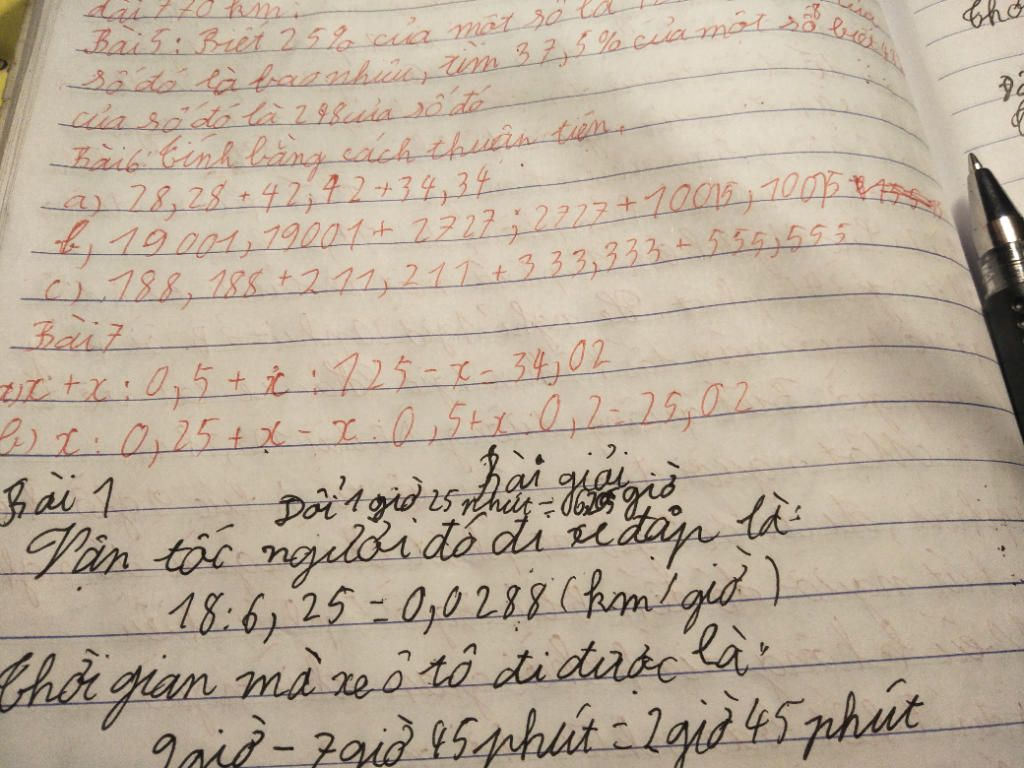 dài 770 km.
Bài 5: Biết 25% của một số là
số đó là bao nhiêu, tìm 37,5% của một số biết
của số đó là 298 của số đó
Bài 6 tính bằng cách thuận tiện.
a) 28,28 + 42,42 + 34,34
b, 19001,19001 + 2727;2727 + 10015,10015
c) 188,188 + 211,211 + 333,333 + 555,555
Bài 7
a) x + x : 0,5 + x : 125 - x = 34,02
b) x : 0,25 + x - x : 0,5 + x : 0,2 = 25,02
Bài 1 Bài giải
Đổi 1 giờ 25 phút = giờ
Vận tốc người đó đi xe đạp là:
18:6,25 = 0,0288 (km/giờ)
Thời gian mà xe ô tô đi được là:
9 giờ - 7 giờ 45 phút = 2 giờ 45 phút